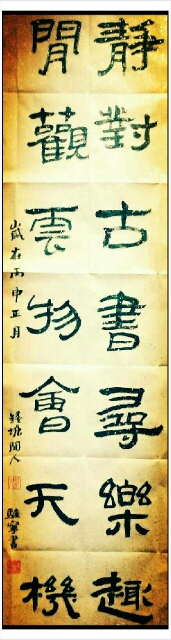 靜對古書尋樂趣
閒觀雲物會天機
歲在丙申正月
錢塘閒人